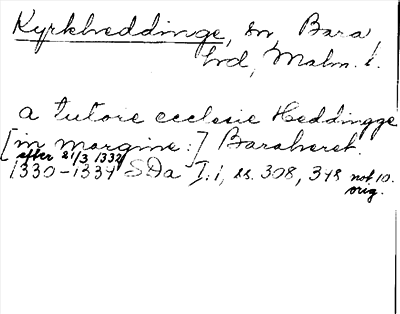 Kyrkheddinge, sn, Bara
hd, Malm. l.
a tutore ecclesie Heddingge
[in margine:] Baraheret.
efter 21/3 1332
1330-1334 SDa I:1, ss. 308, 348 not. 10.
orig.